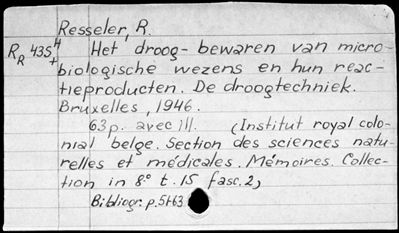 Resseler, R.
R_R 435 4 + Het droog- bewaren van micro-
biologische wezens en hun reac-
tieproducten. De droogtechniek.
Bruxelles, 1946.
63p. avec ill. (Institut royal colo-
nial belge. Section des sciences natu-
relles et médicales. Mémoires. Collec-
tion in 8° t.15 fasc.2)
Bibliogr. p.5163